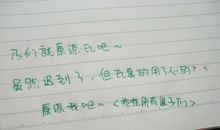 乃们就原谅瓦吧～
虽然迟到了,但瓦真的用了心的?<
原谅我吧～<抱住所有亲了们>